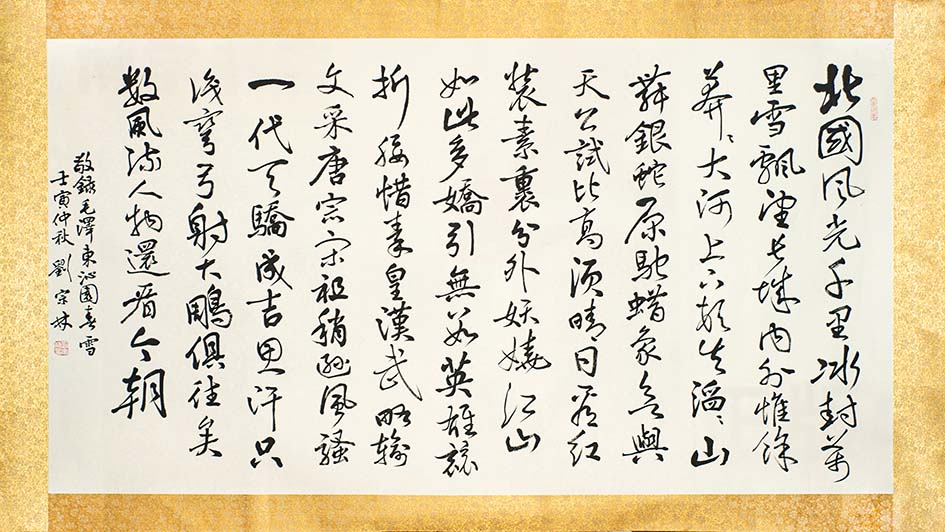 北國风光千里冰封萬
里雪飄望长城内外惟餘
莽〻大河上下頓失滔〻山
舞銀蛇原馳蜡象欲與
天公試比高須晴日看红
裝素裹分外妖嬈江山
如此多嬌引無數英雄競
折腰惜秦皇漢武略输
文采唐宗宋祖稍遜風騷
一代天驕成吉思汗只
識彎弓射大鵰俱往矣
數風流人物還看今朝
敬録毛澤東沁園春雪
壬寅仲秋劉宗林